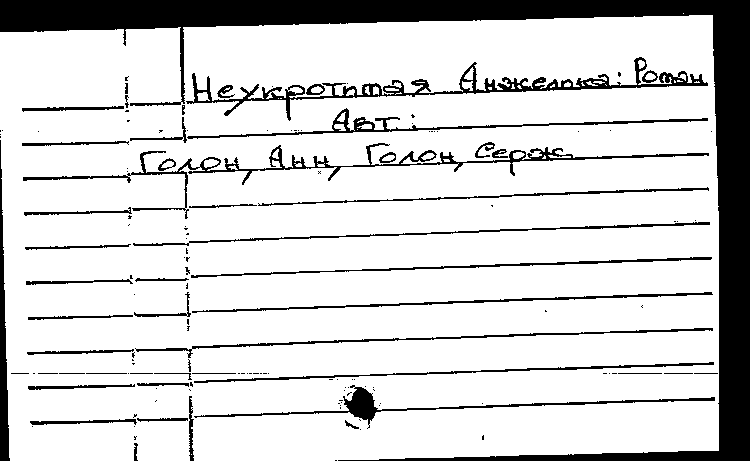 Неукротимая Анжелика: Роман
Авт.:
Голон, Анн, Голон, Серж